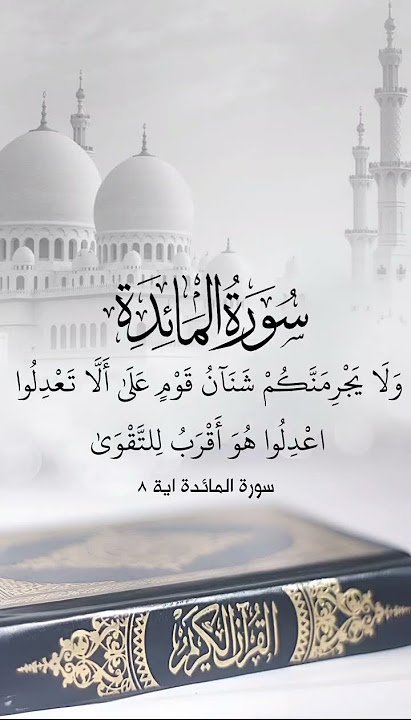 سُورَةُ المَائِدَةِ
وَلَا يَجْرِمَنَّكُمْ شَنَآنُ قَوْمٍ عَلَىٰ أَلَّا تَعْدِلُوا
اعْدِلُوا هُوَ أَقْرَبُ لِلتَّقْوَىٰ
سورة المائدة اية ٨
القرآن الكريم